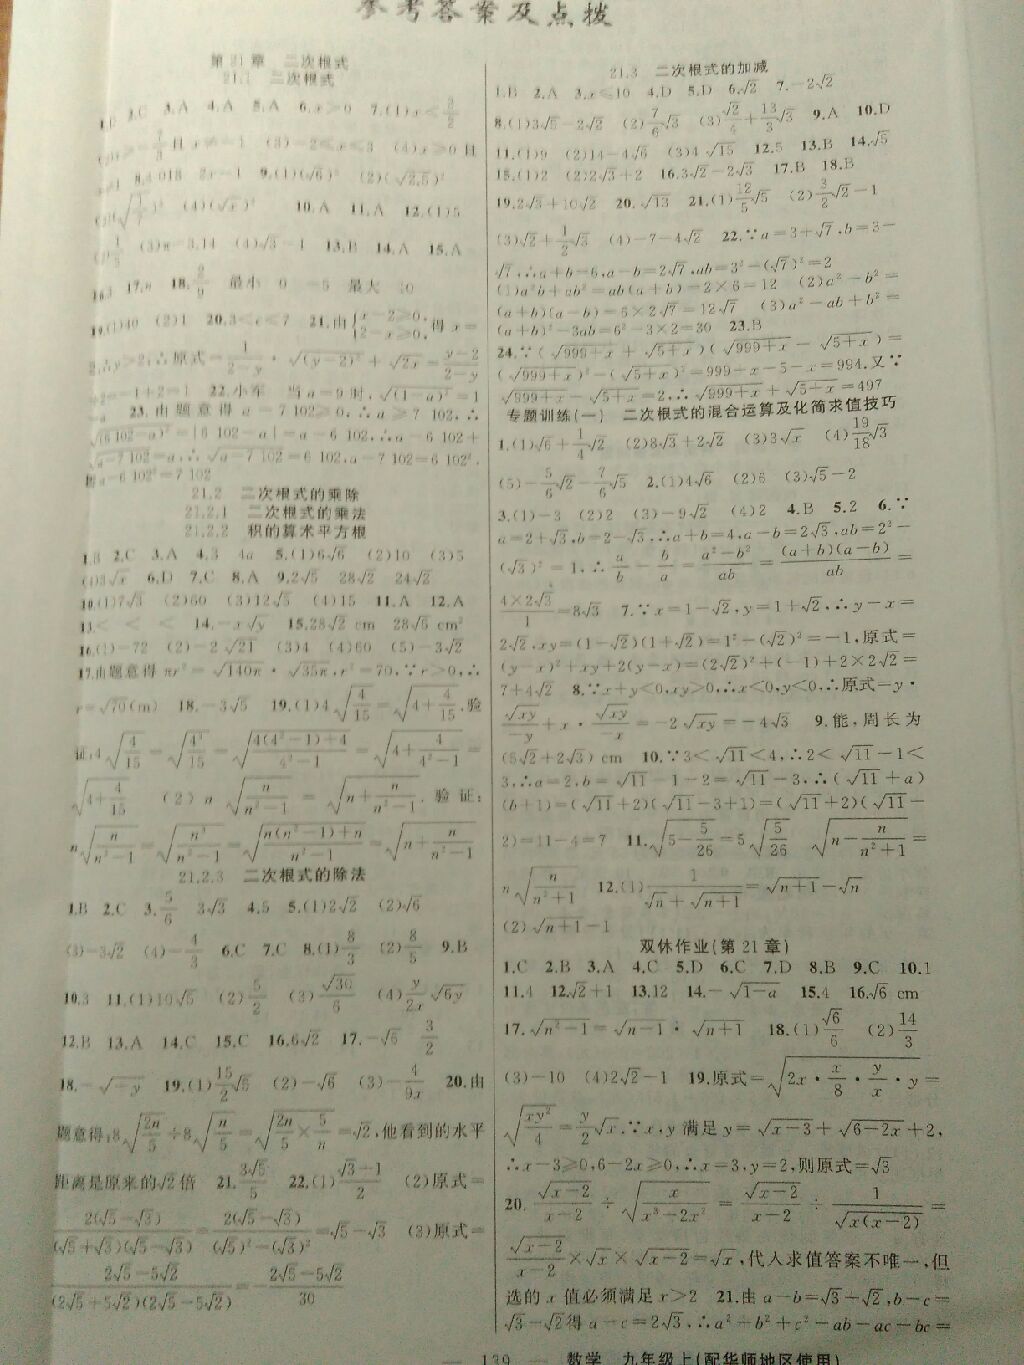 参考答案及点拨
第21章 二次根式
21.1 二次根式
2.C 3.A 4.A 5.A 6.x≥0 7.(1)x<3/2
(3)-2≤x≤3 (4)x≥0且
2x-1 9.(1)(√6)² (2)(√2.5)²
(4)(√x)² 10.A 11.A 12.(1)5
(4)√3-1 13.B 14.A 15.A
18.2/9 最小 0 -5 最大 10
19.(1)40 (2)1 20.3<c<7 21.由{x-2≥0, 2-x≥0, 得x=
2,∴y>2,∴原式=1/(2-y)·√((y-2)²)+√(2x)=(y-2)/(2-y)
+2=-1+2=1 22.小军 当a=9时,√((1-a)²)=|1
23.由题意得a-7 102≥0,∴a≥7 102,∴
√((6 102-a)²)=|6 102-a|=a-6 102,∴a-6 102+
√(a-7 102)=a,∴√(a-7 102)=6 102,a-7 102=6 102²,
a-6 102²=7 102
21.2 二次根式的乘除
21.2.1 二次根式的乘法
21.2.2 积的算术平方根
1.B 2.C 3.A 4.3 4a 5.(1)6√6 (2)10 (3)5
(4)3√x 6.D 7.C 8.A 9.2√5 28√2 24√2
10.(1)7√3 (2)60 (3)12√5 (4)15 11.A 12.A
13.< < < 14.-x√y 15.28√2 cm 28√5 cm²
16.(1)-72 (2)-2√21 (3)4 (4)60 (5)-3√2
17.由题意得πr²=√(140π)·√(35π),r²=70,∵r>0,∴
r=√70(m) 18.-3√5 19.(1)4√(4/15)=√(4+4/15).验
证:4√(4/15)=√(4³/15)=√((4(4²-1)+4)/(4²-1))=√(4+4/(4²-1))=
√(4+4/15) (2)n√(n/(n²-1))=√(n+n/(n²-1)).验证:
n√(n/(n²-1))=√(n³/(n²-1))=√((n(n²-1)+n)/(n²-1))=√(n+n/(n²-1))
21.2.3 二次根式的除法
1.B 2.C 3.5/6 3√3 4.5 5.(1)2√2 (2)√6
(3)-3√2 (4)-4/3 6.C 7.C 8.(1)8/3 (2)8/5 9.B
10.3 11.(1)10√5 (2)5/2 (3)√30/6 (4)y/2x √(6y)
12.B 13.A 14.C 15.C 16.6√2 17.-√6 3/2
18.-√(-y) 19.(1)15/2√6 (2)-√6 (3)-4/9x 20.由
题意得:8√(2n/5)÷8√(n/5)=√(2n/5×5/n)=√2,他看到的水平
距离是原来的√2倍 21.3√5/5 22.(1)(√3-1)/2 (2)原式=
2(√5-√3)/((√5+√3)(√5-√3))=2(√5-√3)/((√5)²-(√3)²)=√5-√3 (3)原式=
(2√5-5√2)/((2√5+5√2)(2√5-5√2))=-(2√5-5√2)/30
21.3 二次根式的加减
1.B 2.A 3.x≤10 4.D 5.D 6.√2 7.-2√2
8.(1)3√5-2√2 (2)7/6√3 (3)√2/4+13/3√3 9.A 10.D
11.(1)9 (2)14-4√6 (3)4√15 12.5 13.B 14.√5
15.(1)2 (2)2√3+2 16.3√2-2√3 17.B 18.B
19.2√3+10√2 20.√13 21.(1)12/5√5 (2)3/2√2-1
(3)√2+1/2√3 (4)-7-4√2 22.∵a=3+√7,b=3-
√7,∴a+b=6,a-b=2√7,ab=3²-(√7)²=2
(1)a²b+ab²=ab(a+b)=2×6=12 (2)a²-b²=
(a+b)(a-b)=6×2√7=12√7 (3)a²-ab+b²=
(a+b)²-3ab=6²-3×2=30 23.B
24.∵(√(999+x)+√(5+x))(√(999+x)-√(5+x))=
(√(999+x))²-(√(5+x))²=999+x-5-x=994,又∵
√(999+x)-√(5+x)=2,∴√(999+x)+√(5+x)=497
专题训练(一) 二次根式的混合运算及化简求值技巧
1.(1)√6+1/4√2 (2)8√3+2√2 (3)3√x (4)19/18√3
(5)-5/6√2-7/6√5 2.(1)4√6 (2)6 (3)√5-2
3.(1)-3 (2)2 (3)-9√2 (4)2 4.B 5.2 6.∵
a=2+√3,b=2-√3,∴a+b=4,a-b=2√3,ab=2²-
(√3)²=1,∴a/b-b/a=(a²-b²)/ab=(a+b)(a-b)/ab=
4×2√3/1=8√3 7.∵x=1-√2,y=1+√2,∴y-x=
2√2,xy=(1-√2)(1+√2)=1²-(√2)²=-1,原式=
(y-x)²+xy+2(y-x)=(2√2)²+(-1)+2×2√2=
7+4√2 8.∵x+y<0,xy>0,∴x<0,y<0,∴原式=y·
√(xy)/-y+x·√(xy)/-x=-2√(xy)=-4√3 9.能,周长为
(5√2+2√3) cm 10.∵3<√11<4,∴2<√11-1<
3,∴a=2,b=√11-1-2=√11-3,∴(√11+a)
(b+1)=(√11+2)(√11-3+1)=(√11+2)(√11-
2)=11-4=7 11.√(5-5/26)=5√(5/26) √(n-n/(n²+1))=
n√(n/(n²+1)) 12.(1)1/(√n+√(n+1))=√(n+1)-√n
(2)√(n+1)-1
双休作业(第21章)
1.C 2.B 3.A 4.C 5.D 6.C 7.D 8.B 9.C 10.1
11.4 12.√2+1 13.12 14.-√(1-a) 15.4 16.√6 cm
17.√(n²-1)=√(n-1)·√(n+1) 18.(1)√6/6 (2)14/3
(3)-10 (4)2√2-1 19.原式=√(2x·x/8·y/x·y)=
√(xy²/4)=y/2√x.∵x,y满足y=√(x-3)+√(6-2x)+2,
∴x-3≥0,6-2x≥0,∴x=3,y=2,则原式=√3
20.√(x-2)/(x-2)÷√(x/(x³-2x²))=√(x-2)/(x-2)÷1/√(x(x-2))=
√(x-2)/(x-2)×√x×√(x-2)=√x,代入求值答案不唯一,但
选的x值必须满足x>2 21.由a-b=√3+√2,b-c=
√3-√2得a-c=2√3,∴a²+b²+c²-ab-ac-bc=
139 数学 九年级上(配华师地区使用)